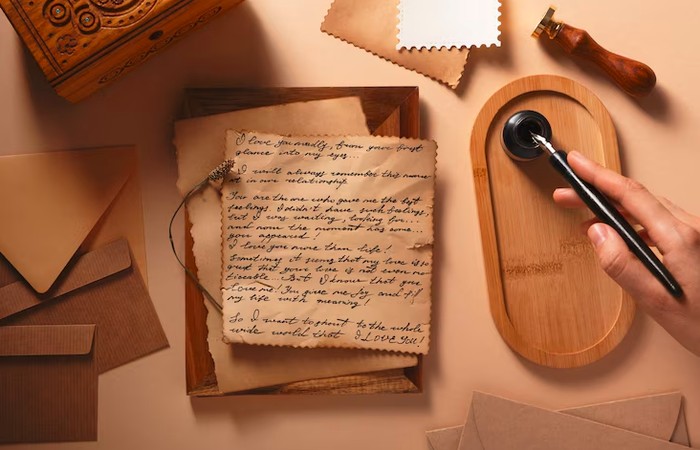 I love you madly, from your first
glance into my eyes...
I will always remember this moment
in our relationship.
You are the one who gave me the best
feelings. I didn't have such feelings,
but I was waiting, looking for...
and now the moment has come...
you appeared!
I love you more than life!
Sometimes it seems that my love is so
great that your love is not even no-
ticeable. But I know that you
love me! You give me joy and fill
my life with meaning!
So I want to shout to the whole
wide world that I LOVE YOU!